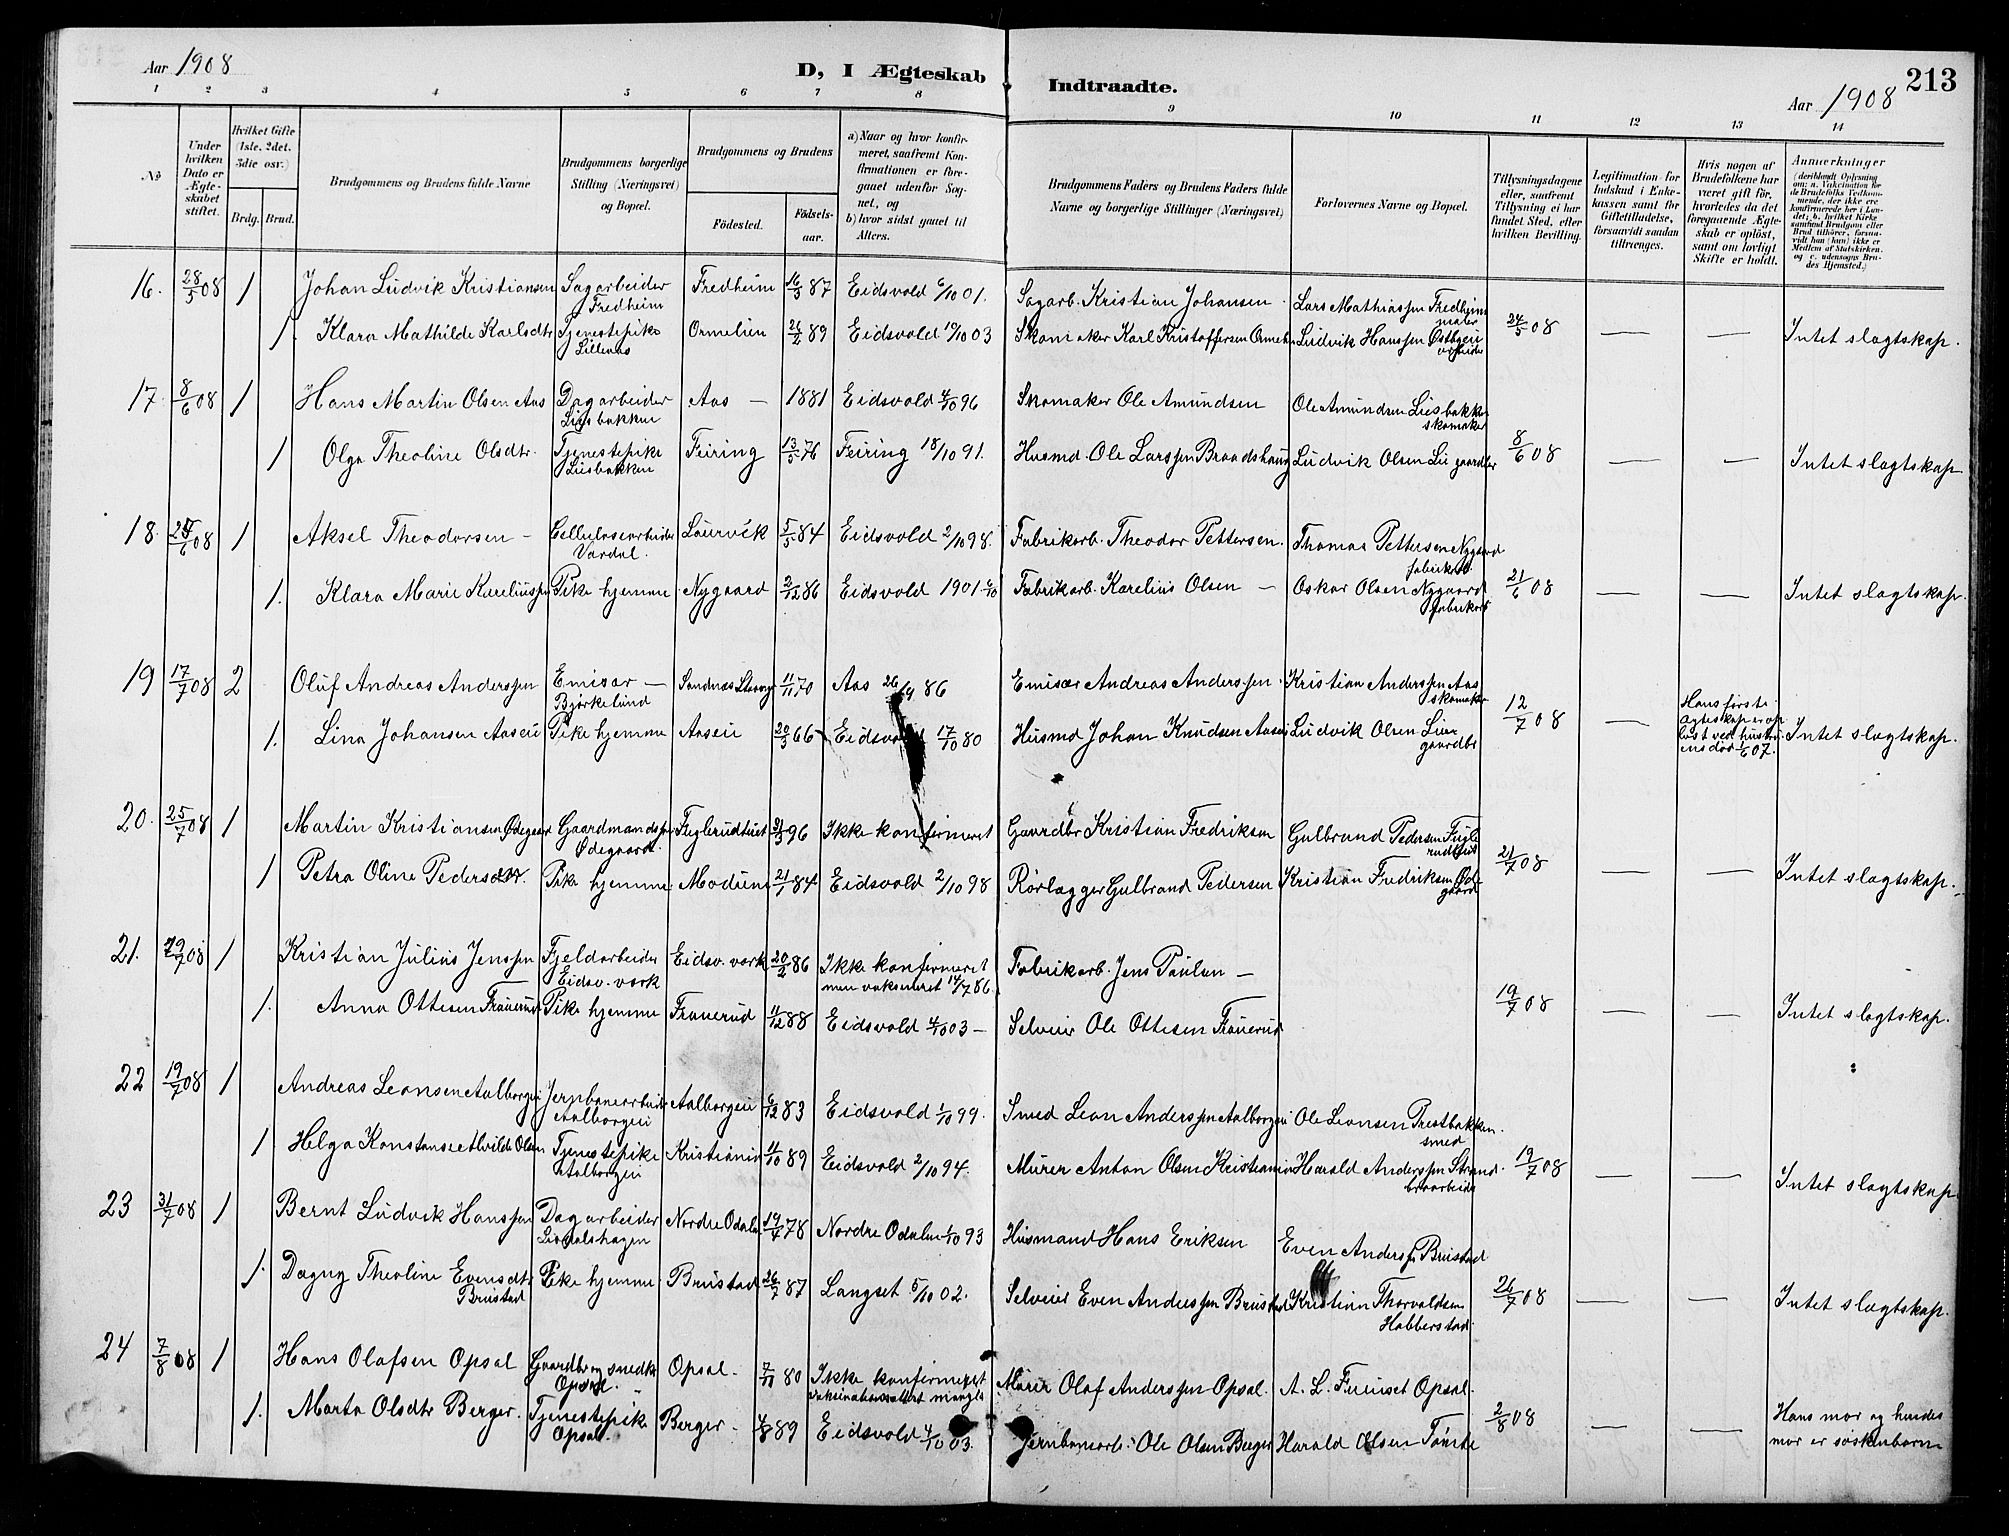 Aar 1908
D, I Ægteskab Indtraadte.
213
Aar 1908
1 2 3 4 5 6 7 8 9 10 11 12 13 14
No
Under hvilken Dato er Ægteskabet stiftet.
Hvilket Gifte (1ste, 2det, 3die osv.)
Brdg. Brud.
Brudgommens og Brudens fulde Navne
Brudgommens borgerlige Stilling (Næringsvei) og Bopæl.
Brudgommens og Brudens
Fødested.
Fødsels-
aar.
a) Naar og hvor konfir-
meret, saafremt Kon-
firmationen er fore-
gaaet udenfor Sog-
net, og
b) hvor sidst gaaet til
Alters.
Brudgommens Faders og Brudens Faders fulde
Navne og borgerlige Stillinger (Næringsvei)
Forlovernes Navne og Bopæl.
Tillysningsdagene
eller, saafremt
Tillysning ei har
fundet Sted, efter
hvilken Bevilling.
Legitimation for
Indskud i Enke-
kassen samt for
Giftetilladelse,
forsaavidt saadan
tiltrænges.
Hvis nogen af
Brudefolkene har
været gift før,
hvorledes da det
foregaaende Ægte-
skab er opløst,
samt om lovligt
Skifte er holdt.
Anmærkninger
(deriblandt Oplysning
om: a. Vakcination for
de Brudefolks Vedkom-
mende, der ikke ere
konfirmerede her i Lan-
det; b. hvilket Kirke
samfund Brudgom eller
Brud tilhører, forsaa-
vidt han (hun) ikke er
Medlem af Statskirken,
og c. udensogns Bru-
des Hjemsted.)
16. 28/5 08 1 Johan Ludvik Kristiansen Sagarbeider Fredheim Fredheim 16/3 87 Eidsvold 6/10 01. Sagarb. Kristian Johansen Lars Mathiassen Fredheim maler
1. Klara Mathilde Karlsdtr Tjenestepike Lillenæs Ormelien 21/2 89 Eidsvold 19/10 03 Skomaker Karl Kristoffersen Ormelien Ludvik Hanssen Østbyeie arbeider 24/5 08 — — Intet slagtskap.
17. 8/6 08 1 Hans Martin Olsen Aas Dagarbeider Liesbakken Aas — 1881 Eidsvold 4/10 96 Skomaker Ole Amundsen Ole Amundsen Liesbakken skomaker
1 Olga Theoline Olsdtr. Tjenestepike Liesbakken Feiring 13/5 76 Feiring 18/10 91. Husmd. Ole Larssen Braadshaug Ludvik Olsen Lie gaardbr 8/6 08 — — Intet slagtskap
18. /6 08 1 Aksel Theodorsen — Cellulosearbeider Vardal. Laurvik 5/5 84 Eidsvold 2/10 98. Fabrikarb. Theodor Pettersen. Thomas Pettersen Nygaard fabrikarb.
1. Klara Marie Kareliussen Pike hjemme Nygaard 2/12 86 Eidsvold 1901 6/10 Fabrikarb. Karelius Olsen — Oskar Olsen Nygaard fabrikarb 21/6 08 — — Intet slagtskap.
19 17/7 08 2 Oluf Andreas Anderssen Emisær — Bjørkelund Sandnæs Stavang 11/11 70 Aas 26/9 86 Emisær Andreas Anderssen. Kristian Anderssen Aas skomaker
1. Lina Johansen Aaseie Pike hjemme Aaseie 20/3 66 Eidsvold 17/10 80 Husmd Johan Knudsen Aaseie Ludvik Olsen Lie gaardbr 12/7 08 — Hans første ægteskap er opløst ved hustruens død 1/6 07. Intet slagtskap.
20. 25/7 08 1 Martin Kristiansen Ødegaard Gaardmandssøn Ødegaard. Fuglerudtuet 31/3 96 Ikke konfirmeret Gaardbr Kristian Fredriksen Gulbrand Pedersen Fuglerudtuet
1 Petra Oline Pedersdtr. Pike hjemme Modum 21/1 84 Eidsvold 2/10 98 Rørlægger Gulbrand Pedersen Kristian Fredriksen Ødegaard 21/7 08 — — Intet slagtskap.
21. 19/7 08 1 Kristian Julius Jenssen Fjeldarbeider Eidsv. værk Eidsv. værk 20/2 86 Ikke konfirmeret men vaksineret 14/7 86. Fabrikarb. Jens Paulsen —
1. Anna Ottesen Frauerud Pike hjemme Frauerud 11/12 88 Eidsvold 4/10 03 — Selveier Ole Ottesen Frauerud 19/7 08 — — Intet slagtskap.
22 19/7 08 1 Andreas Leonsen Aalborgeie Jernbanearbeider Aalborgeie Aalborgeie 6/12 83 Eidsvold 1/10 99. Smed Leon Anderssen Aalborgeie Ole Leonsen Prestbakken. smed
1 Helga Konstanse Alvilde Olsen Tjenestepike Aalborgeie Kristiania 11/10 89 Eidsvold 2/10 94. Murer Anton Olsen Kristiania Harald Anderssen Strand. 19/7 08 — — Intet slagtskap
23 31/7 08 1 Bernt Ludvik Hanssen Dagarbeider Nordre Odalen 19/4 78 Nordre Odalen 1/10 93 Husmand Hans Eriksen Even Anderssen Brustad
1. Dagny Theoline Evensdtr Brustad Pike hjemme Brustad 26/7 87 Langset 5/10 02. Selveier Even Anderssen Brustad Kristian Thorvaldsen Habberstad 26/7 08 — — Intet slagtskap.
24 7/8 08 1 Hans Olafsen Opsal Gaardbr og snedker Opsal. Opsal. 7/11 80 Ikke konfirmeret vaksinationsattest mangler Murer Olaf Anderssen Opsal. A. L. Furuset Opsal.
1. Marta Olsdtr Berger. Tjenestepike Opsal. Berger. 4/8 89 Eidsvold 4/10 03. Jernbanearb. Ole Olsen Berger Harald Olsen Tømte 2/8 08 — — Hans mor og hendes mor er søskenbarn